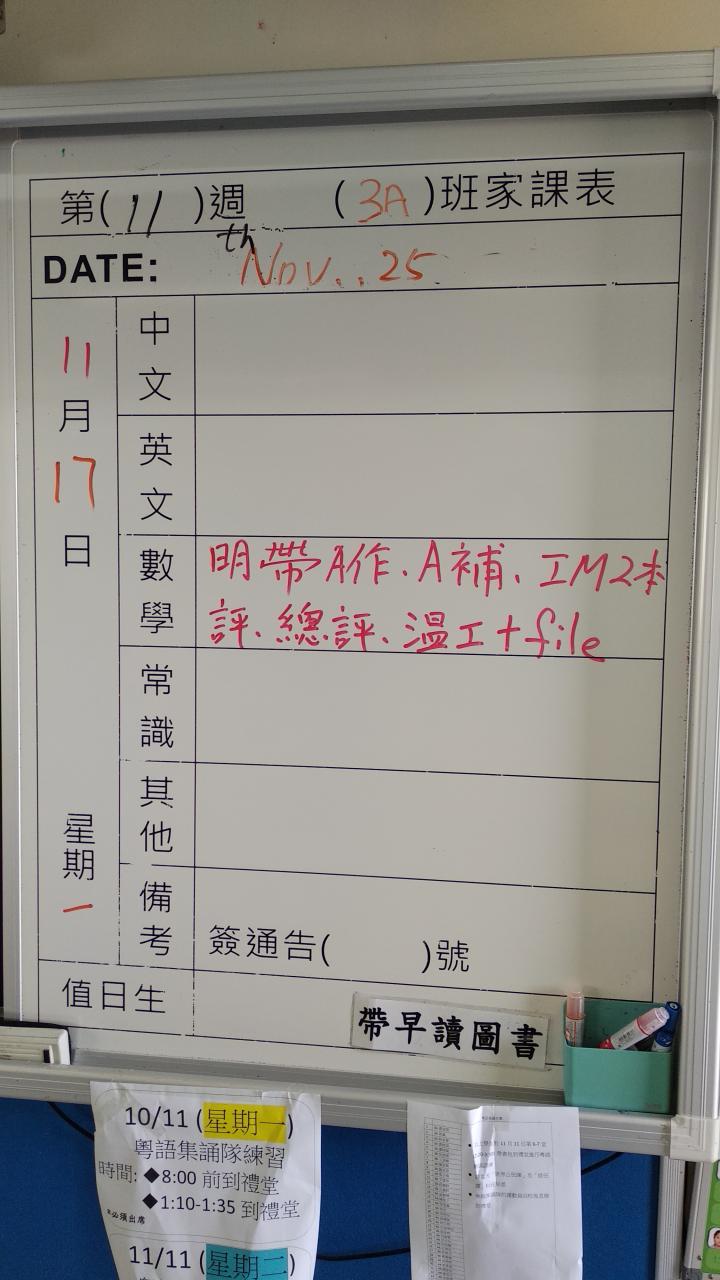 第(11)週 (3A)班家課表
th
DATE: Nov..25
11月17日
星期一
中文
英文
數學
明帶A作、A補、工M2本
評、總評、溫工+file
常識
其他
備考
簽通告( )號
值日生
帶早讀圖書
10/11 (星期一)
粵語集誦隊練習
時間: ◆8:00 前到禮堂
◆1:10-1:35 到禮堂
*必須出席
11/11 (星期二)